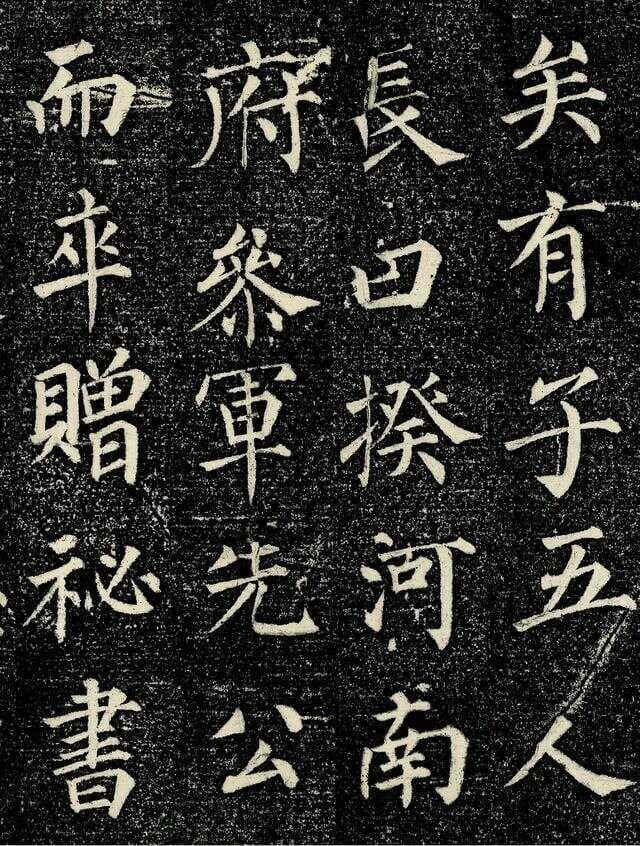 矣有子五人
長曰揆河南
府參軍先公
而卒贈祕書